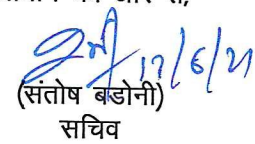 17/6/21
(संतोष बडोनी)
सचिव